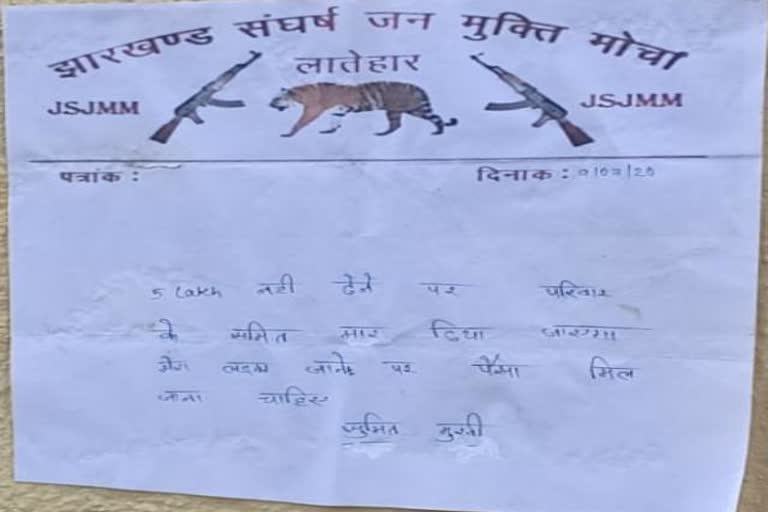 झारखण्ड संघर्ष जन मुक्ति मोर्चा
लातेहार
JSJMM JSJMM
पत्रांक :
दिनाक :
5 Lakh नही देने पर परिवार
के समित मार दिया जाएगा
जाने पर पैसा मिल
जाना चाहिए